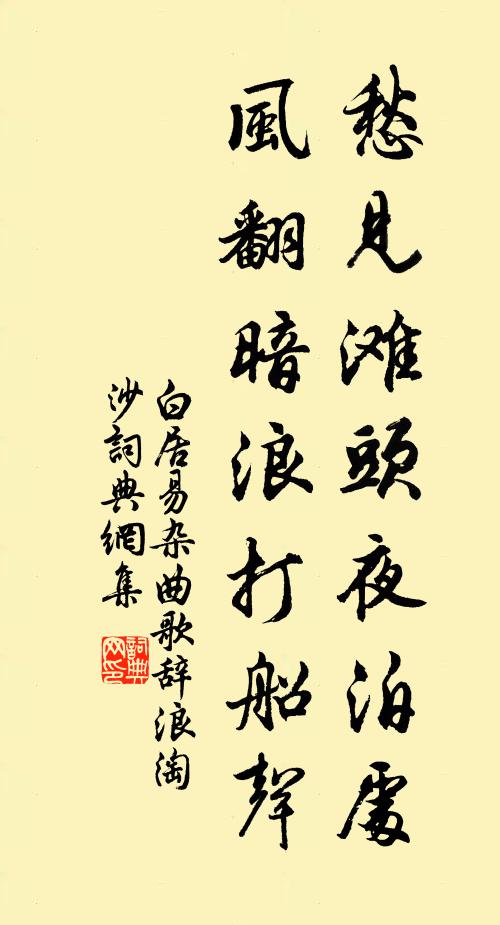 愁見滩頭夜泊處
風翻暗浪打船聲
白居易杂曲歌辞浪淘
沙詞典網集
詞典
网印